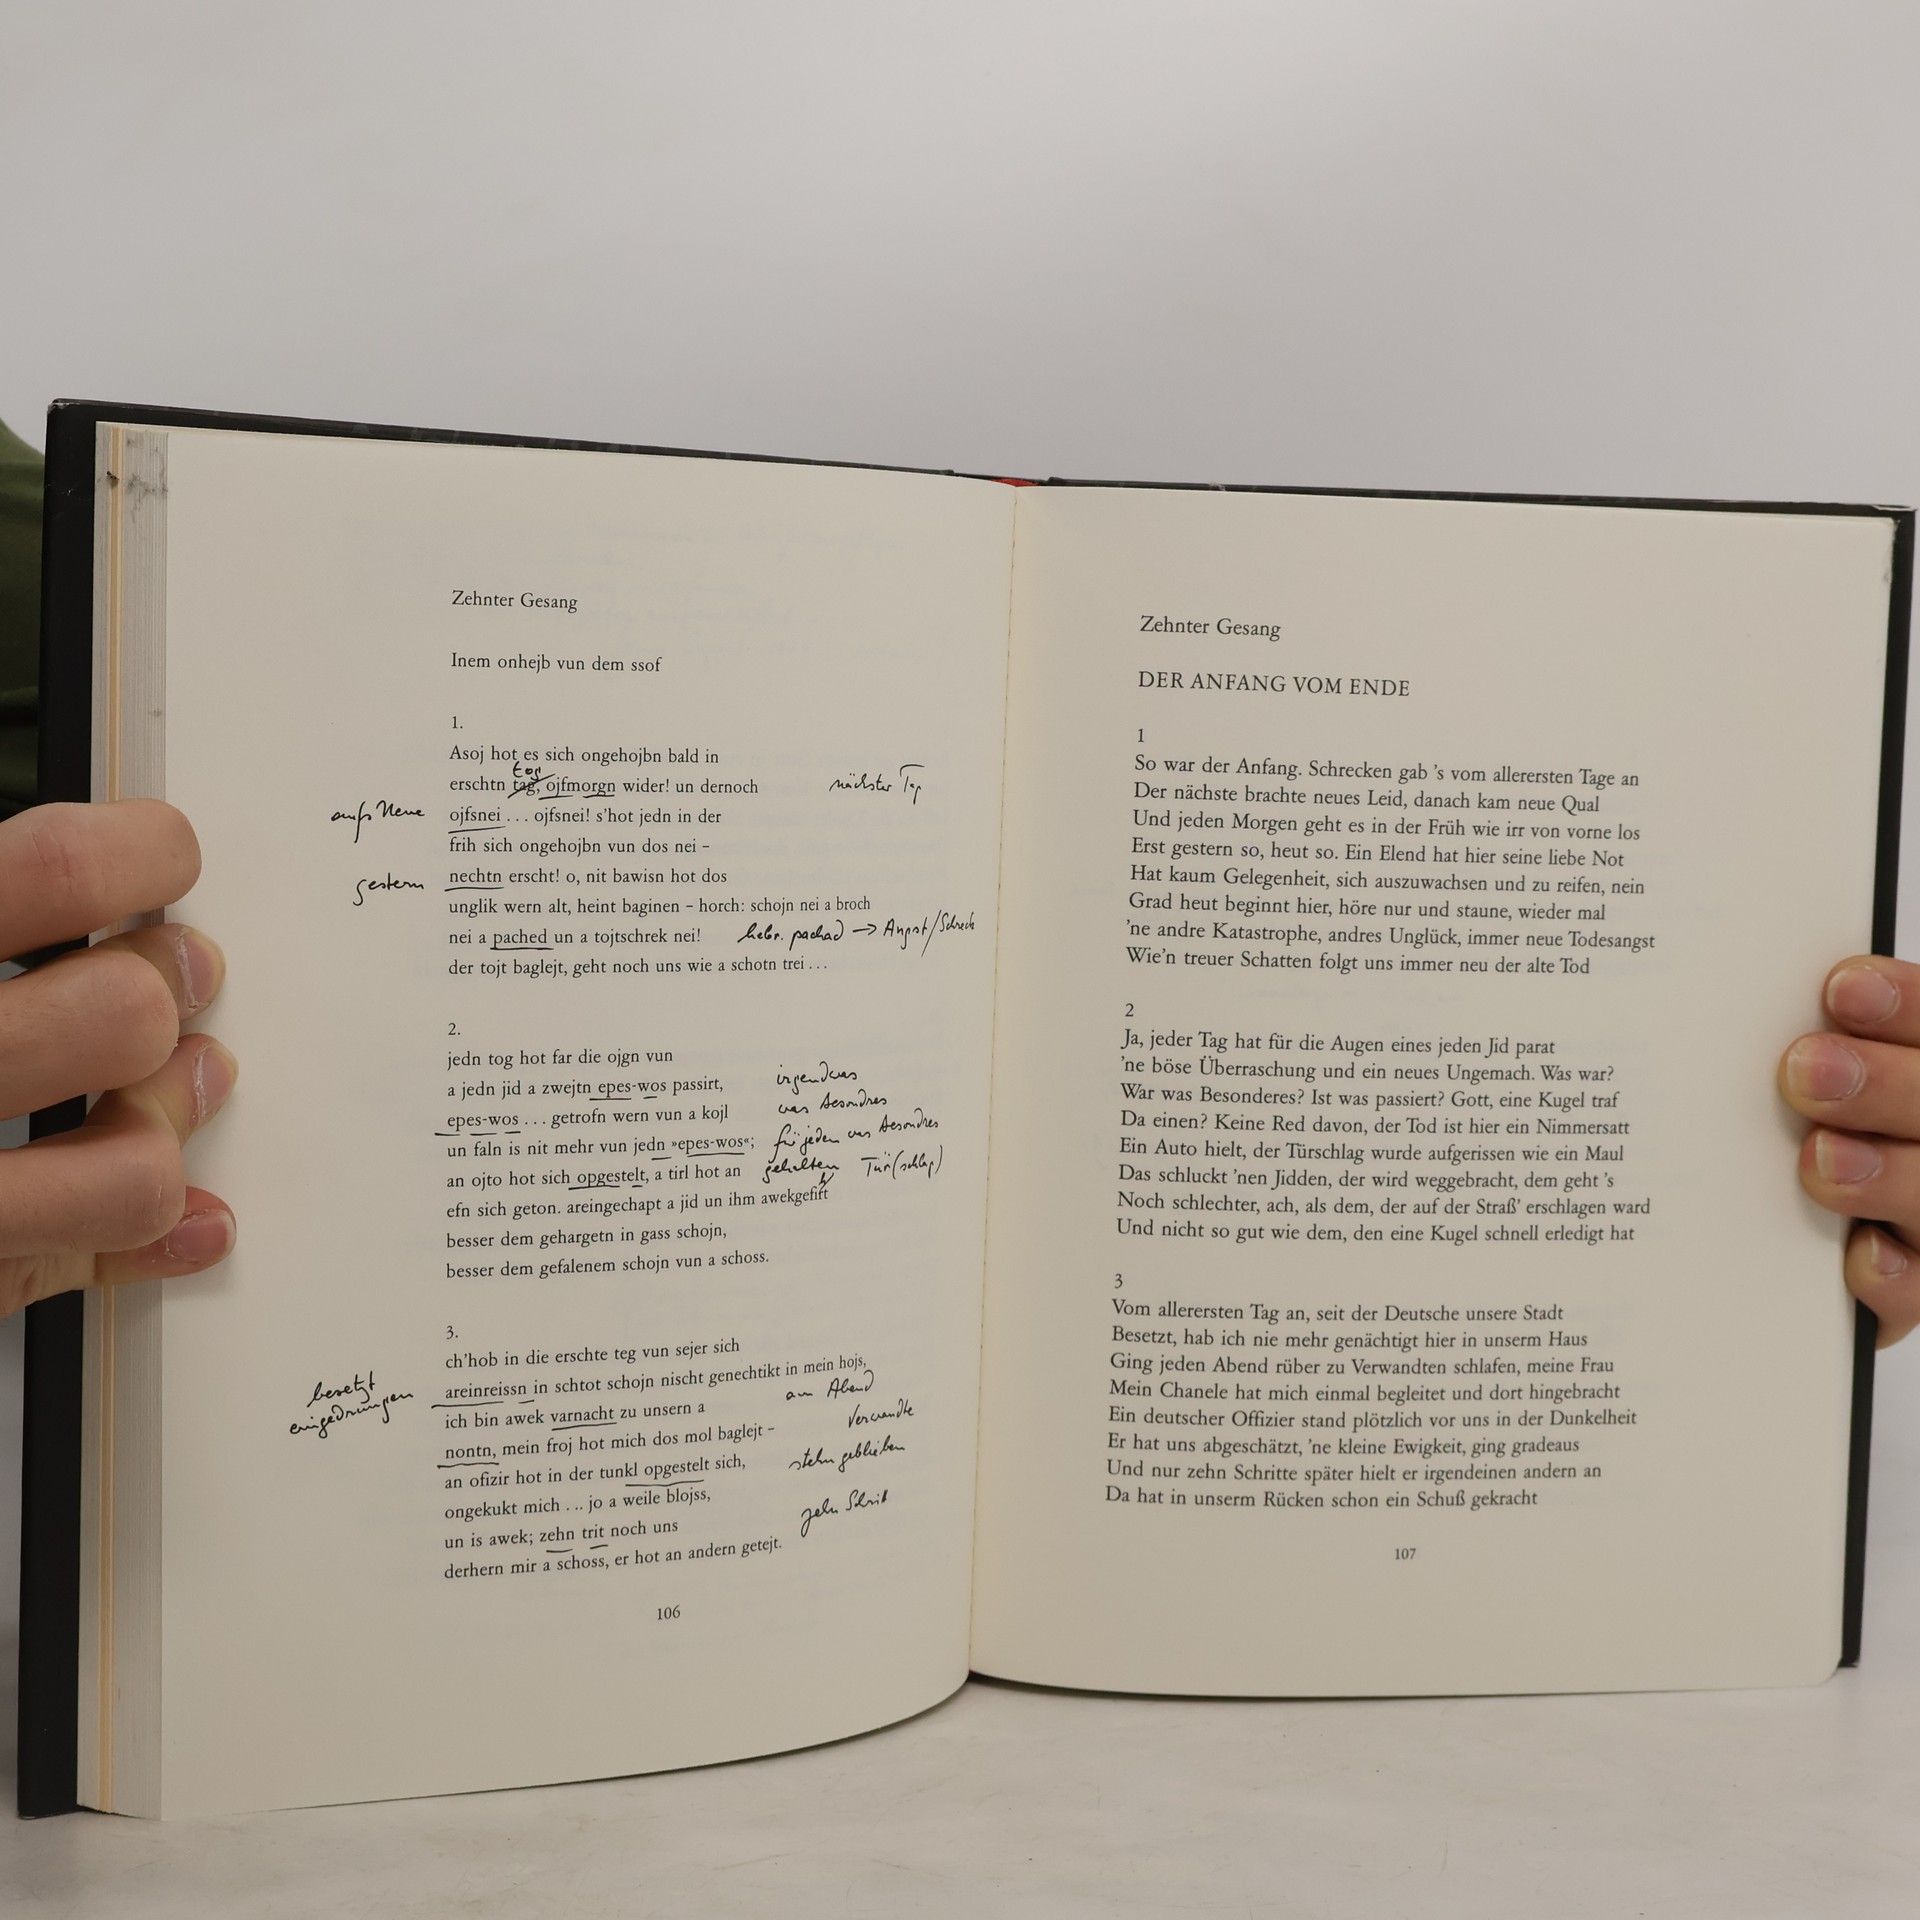 Zehnter Gesang
Inem onhejb vun dem ssof
1.
Asoj hot es sich ongehojbn bald in
tog
erschtn tag, ojfmorgn wider! un dernoch nächster Tag
aufs Neue ojfsnei . . . ojfsnei! s'hot jedn in der
frih sich ongehojbn vun dos nei –
gestern nechtn erscht! o, nit bawisn hot dos
unglik wern alt, heint baginen – horch: schojn nei a broch
nei a pached un a tojtschrek nei! hebr. pachad → Angst/Schreck
der tojt baglejt, geht noch uns wie a schotn trei . . .
2.
jedn tog hot far die ojgn vun
a jedn jid a zwejtn epes-wos passirt, irgendwas
epes-wos . . . getrofn wern vun a kojl was Besondres
un faln is nit mehr vun jedn »epes-wos«; für jeden was Besondres
an ojto hot sich opgestelt, a tirl hot an gehalten Tür(schlag)
efn sich geton. areingechapt a jid un ihm awekgefirt
besser dem gehargetn in gass schojn,
besser dem gefalenem schojn vun a schoss.
3.
ch'hob in die erschte teg vun sejer sich
besetzt
eingedrungen areinreissn in schtot schojn nischt genechtikt in mein hojs,
ich bin awek varnacht zu unsern a am Abend
nontn, mein froj hot mich dos mol baglejt – Verwandte
an ofizir hot in der tunkl opgestelt sich, stehn geblieben
ongekukt mich . . . jo a weile blojss,
un is awek; zehn trit noch uns zehn Schritt
derhern mir a schoss, er hot an andern getejt.
106
Zehnter Gesang
DER ANFANG VOM ENDE
1
So war der Anfang. Schrecken gab 's vom allerersten Tage an
Der nächste brachte neues Leid, danach kam neue Qual
Und jeden Morgen geht es in der Früh wie irr von vorne los
Erst gestern so, heut so. Ein Elend hat hier seine liebe Not
Hat kaum Gelegenheit, sich auszuwachsen und zu reifen, nein
Grad heut beginnt hier, höre nur und staune, wieder mal
'ne andre Katastrophe, andres Unglück, immer neue Todesangst
Wie'n treuer Schatten folgt uns immer neu der alte Tod
2
Ja, jeder Tag hat für die Augen eines jeden Jid parat
'ne böse Überraschung und ein neues Ungemach. Was war?
War was Besonderes? Ist was passiert? Gott, eine Kugel traf
Da einen? Keine Red davon, der Tod ist hier ein Nimmersatt
Ein Auto hielt, der Türschlag wurde aufgerissen wie ein Maul
Das schluckt 'nen Jidden, der wird weggebracht, dem geht 's
Noch schlechter, ach, als dem, der auf der Straß' erschlagen ward
Und nicht so gut wie dem, den eine Kugel schnell erledigt hat
3
Vom allerersten Tag an, seit der Deutsche unsere Stadt
Besetzt, hab ich nie mehr genächtigt hier in unserm Haus
Ging jeden Abend rüber zu Verwandten schlafen, meine Frau
Mein Chanele hat mich einmal begleitet und dort hingebracht
Ein deutscher Offizier stand plötzlich vor uns in der Dunkelheit
Er hat uns abgeschätzt, 'ne kleine Ewigkeit, ging gradeaus
Und nur zehn Schritte später hielt er irgendeinen andern an
Da hat in unserm Rücken schon ein Schuß gekracht
107